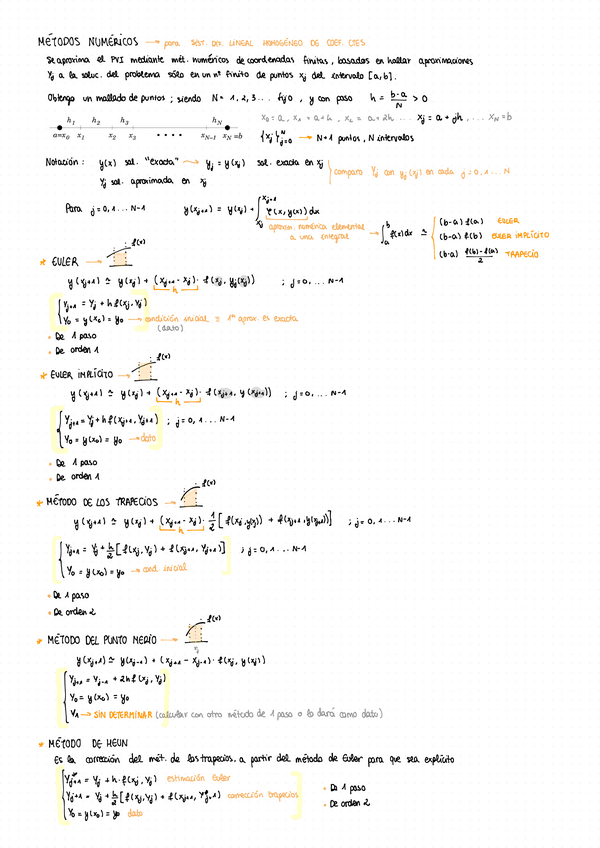 MÉTODOS NUMÉRICOS → para SIST. DIF. LINEAL HOMOGÉNEO DE COEF. CTES
Se aproxima el PVI mediante mét. numéricos de coordenadas finitas, basadas en hallar aproximaciones
Yj a la soluc. del problema sólo en un nº finito de puntos xj del intervalo [a,b].
Obtengo un mallado de puntos; siendo N = 1, 2, 3... fijo, y con paso h = (b-a)/N > 0
x0 = a, x1 = a+h, x2 = a+2h ... xj = a+jh, ... xN = b
h1 h2 h3 hN
a=x0 x1 x2 x3 xN-1 xN=b
{xj}^N_{j=0} → N+1 puntos, N intervalos
Notación: y(x) sol. "exacta" → yj = y(xj) sol. exacta en xj
Yj sol. aproximada en xj
comparo Yj con yj(xj) en cada j=0,1...N
Para j=0,1...N-1 y(xj+1) = y(xj) + ∫_{xj}^{xj+1} f(x,y(x)) dx
aproxim. numérica elemental a una integral → ∫_a^b f(x)dx ≃
(b-a) f(a) EULER
(b-a) f(b) EULER IMPLÍCITO
(b-a) (f(b)-f(a))/2 TRAPECIO
* EULER → f(x)
y(xj+1) ≃ y(xj) + (xj+1 - xj) · f(xj, yj(xj)) ; j=0,...N-1
h
Yj+1 = Yj + h f(xj, Yj)
Y0 = y(x0) = y0 → condición inicial = 1ª aprox. es exacta
(dato)
• De 1 paso
• De orden 1
* EULER IMPLÍCITO → f(x)
y(xj+1) ≃ y(xj) + (xj+1 - xj) · f(xj+1, y(xj+1)) ; j=0,...N-1
h
Yj+1 = Yj + h f(xj+1, Yj+1) ; j=0,1...N-1
Y0 = y(x0) = y0 → dato
• De 1 paso
• De orden 1
* MÉTODO DE LOS TRAPECIOS → f(x)
y(xj+1) ≃ y(xj) + (xj+1 - xj) · 1/2 [f(xj,y(xj)) + f(xj+1,y(xj+1))] ; j=0,1...N-1
h
Yj+1 = Yj + h/2 [f(xj,Yj) + f(xj+1,Yj+1)] ; j=0,1...N-1
Y0 = y(x0) = y0 → cond. inicial
• De 1 paso
• De orden 2
* MÉTODO DEL PUNTO MEDIO → f(x)
xj
y(xj+1) ≃ y(xj-1) + (xj+1 - xj-1) · f(xj, y(xj))
Yj+1 = Yj-1 + 2h f(xj, Yj)
Y0 = y(x0) = y0
Y1 → SIN DETERMINAR (calcular con otro método de 1 paso o lo dará como dato)
* MÉTODO DE HEUN
Es la corrección del mét. de los trapecios, a partir del método de Euler para que sea explícito
Y*j+1 = Yj + h · f(xj, Yj) estimación Euler
Yj+1 = Yj + h/2 [f(xj,Yj) + f(xj+1, Y*j+1)] corrección trapecios
Y0 = y(x0) = y0 dato
• De 1 paso
• De orden 2